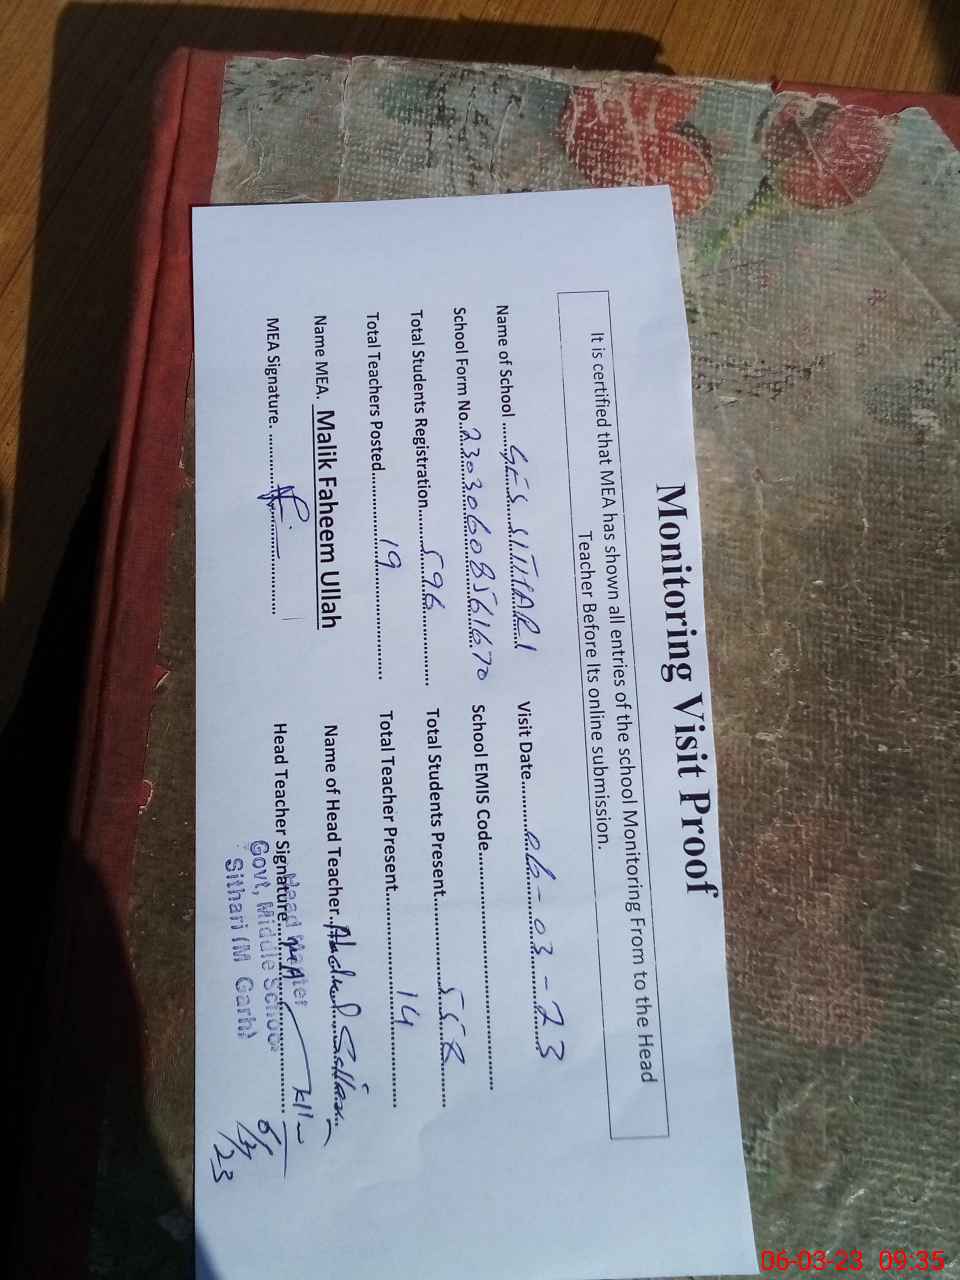 Monitoring Visit Proof
It is certified that MEA has shown all entries of the school Monitoring From to the Head
Teacher Before Its online submission.
Name of School ........GES SITHARI Visit Date..........06-03-23
School Form No..23030608561670 School EMIS Code..........
Total Students Registration........596 Total Students Present..........558
Total Teachers Posted..........19 Total Teacher Present..........14
Name MEA. Malik Faheem Ullah Name of Head Teacher..Abdul
MEA Signature. .......... Head Teacher Signature..........
Head Master
Govt, Middle School
Sithari (M Garh)
6/3/23
06-03-23 09:35